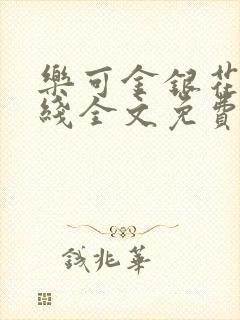 樂可金銀花
綫全文免費
錢兆華